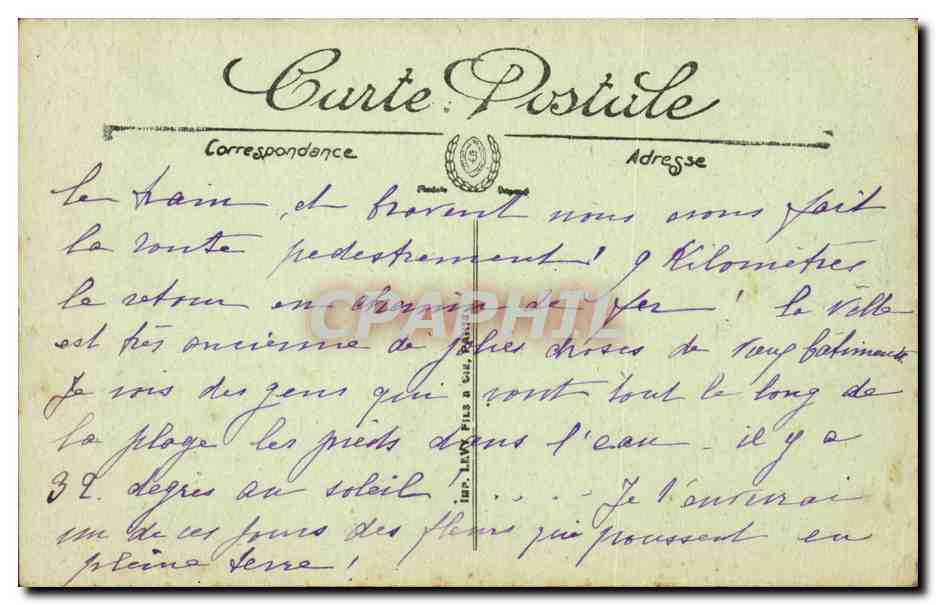 Carte Postale
Correspondance Adresse
Modèle Déposé
le train, et bravent nous avons fait
la route pedestrement ! 9 Kilomètres
le retour en chemin de fer ! la Ville
est très ancienne de jolies choses de vieux bâtiments
Je vois des gens qui vont tout le long de
la plage les pieds dans l'eau - il y a
32 degrés au soleil ! . . . . Je t'enverrai
un de ces jours des fleurs qui poussent en
pleine terre !
IMP. LEVY FILS & CIE, PARIS
CPAPHIL